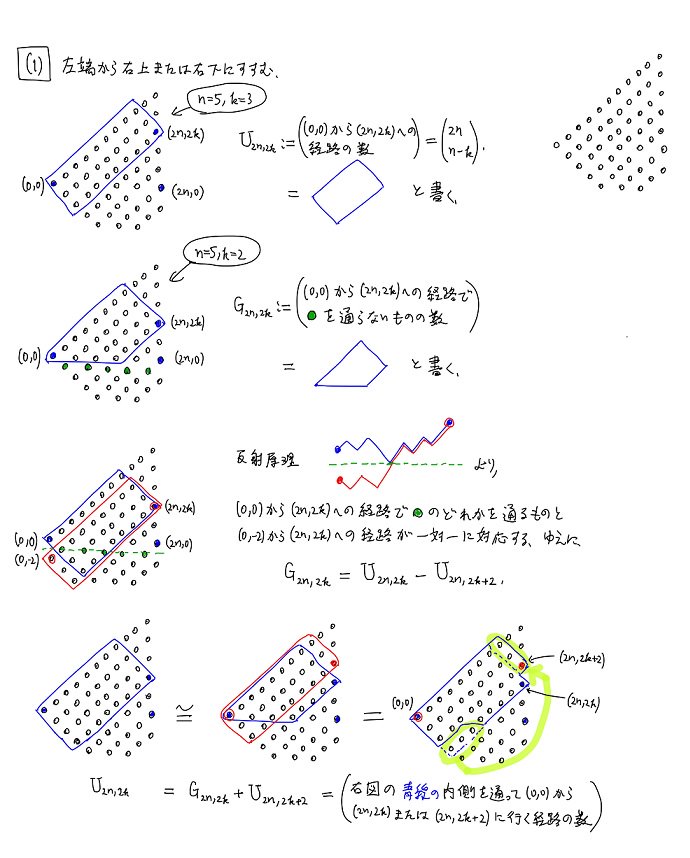 (1) 左端から右上または右下にすすむ.
n=5, k=3
(2n,2k)
(0,0)
(2n,0)
U₂ₙ,₂ₖ := ( (0,0)から(2n,2k)への経路の数 ) = ( 2n n-k ).
= と書く.
n=5, k=2
(2n,2k)
(0,0)
(2n,0)
G₂ₙ,₂ₖ := ( (0,0)から(2n,2k)への経路で
を通らないものの数 )
= と書く.
反射原理 より,
(0,0)から(2n,2k)への経路で のどれかを通るものと
(0,-2)から(2n,2k)への経路が一対一に対応する. ゆえに
G₂ₙ,₂ₖ = U₂ₙ,₂ₖ - U₂ₙ,₂ₖ₊₂.
(2n,2k)
(0,0)
(2n,0)
(0,-2)
≅ =
(2n,2k+2)
(0,0)
(2n,2k)
U₂ₙ,₂ₖ = G₂ₙ,₂ₖ + U₂ₙ,₂ₖ₊₂ = ( 右図の青線の内側を通って(0,0)から
(2n,2k)または(2n,2k+2)に行く経路の数 )